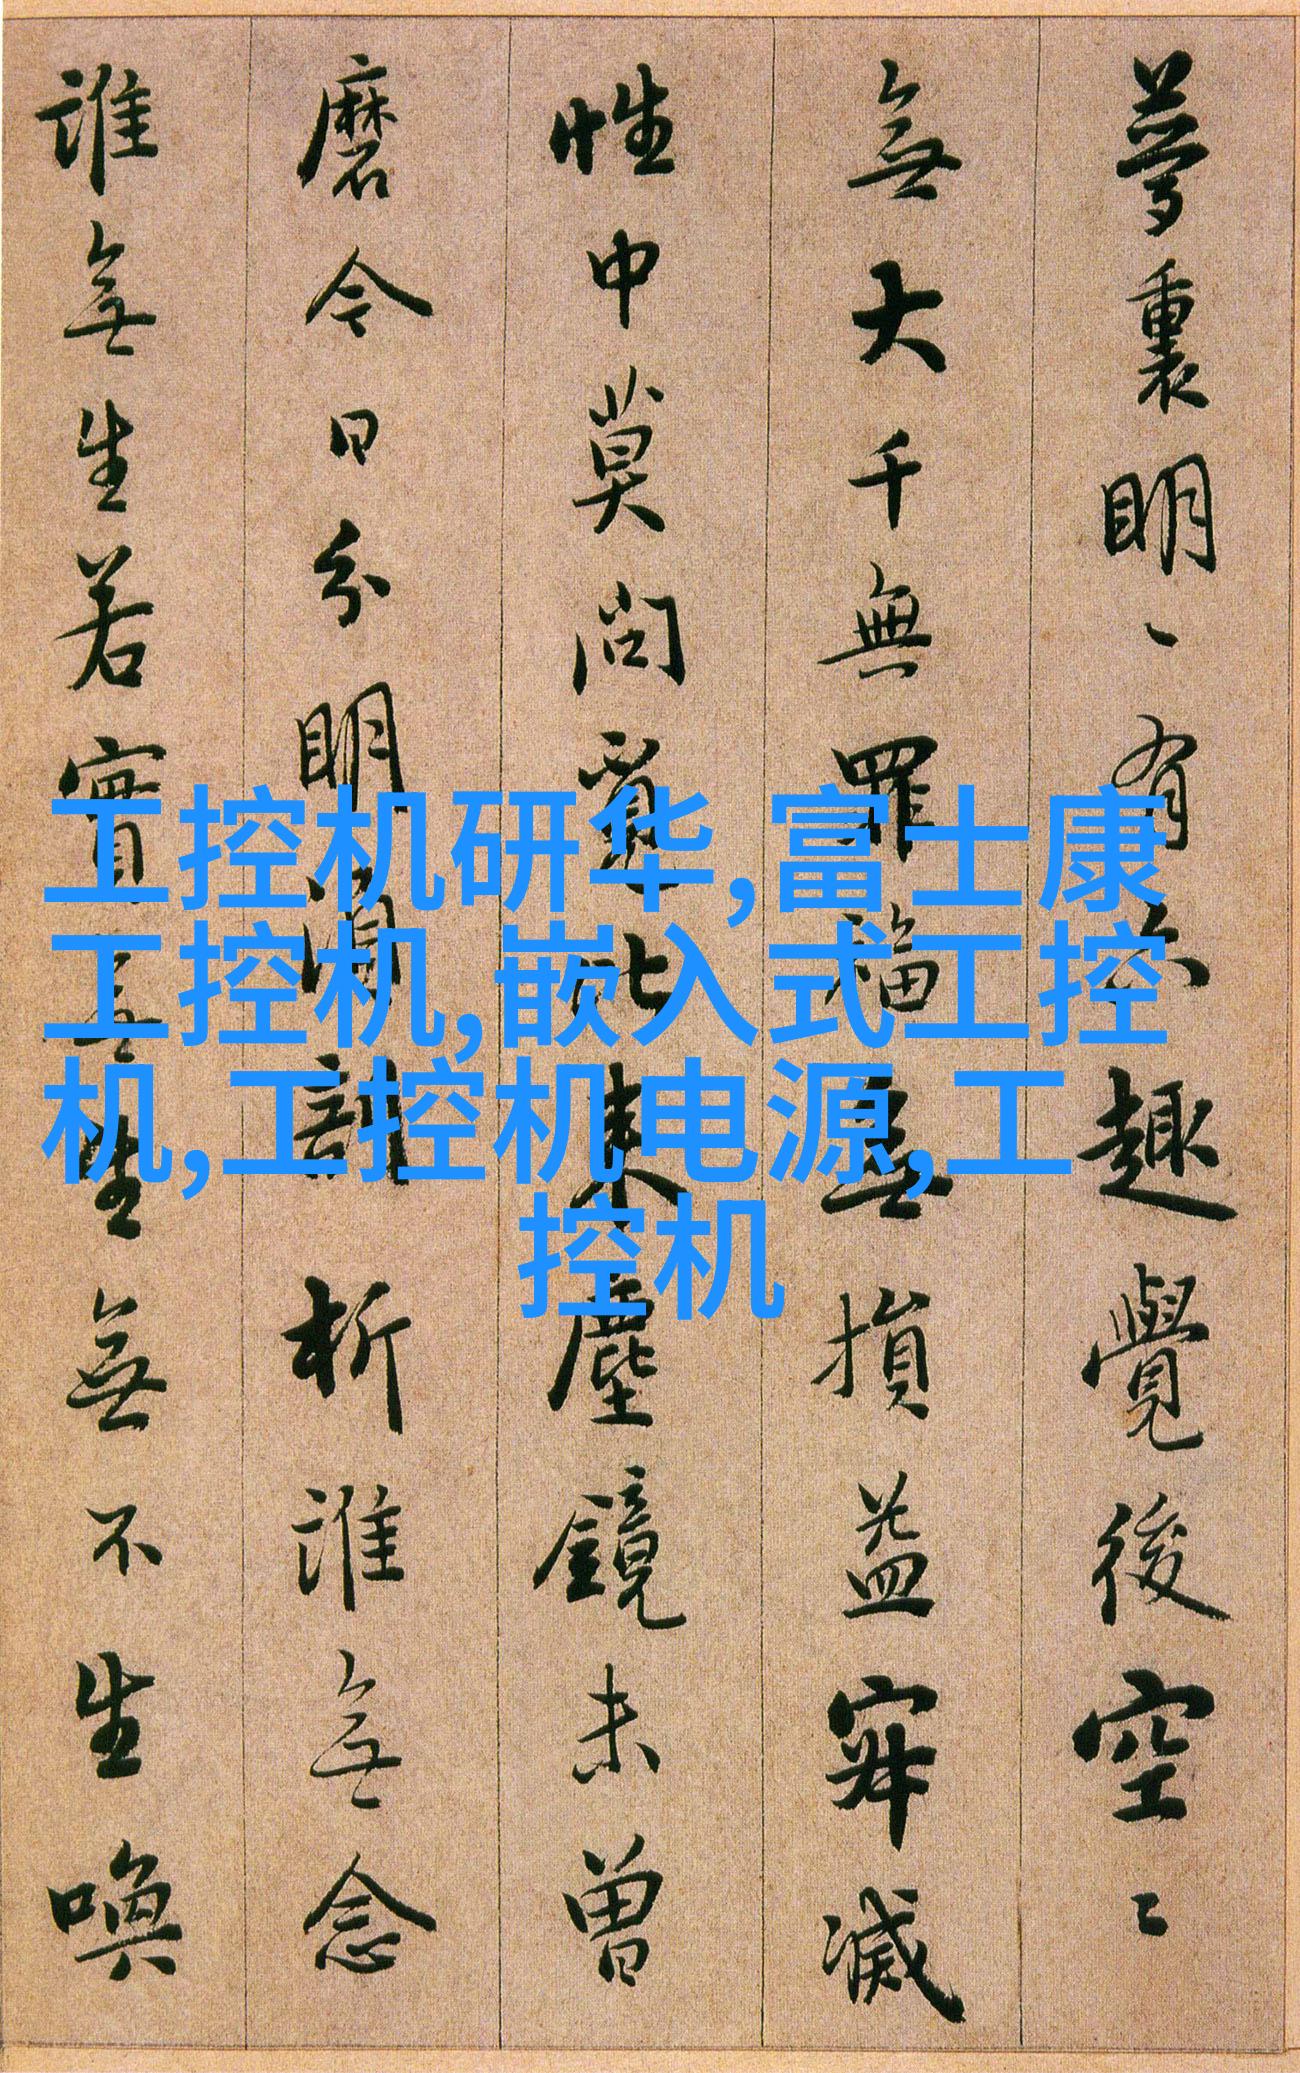 夢裏明〻有六趣覺後空〻
無大千無罪福無損益寂滅
性中莫問覓比来塵鏡未曾
磨今日分明須剖析誰無念
誰無生若實無生無不生喚
工控机研华,富士康
工控机,嵌入式工控
机,工控机电源,工
控机